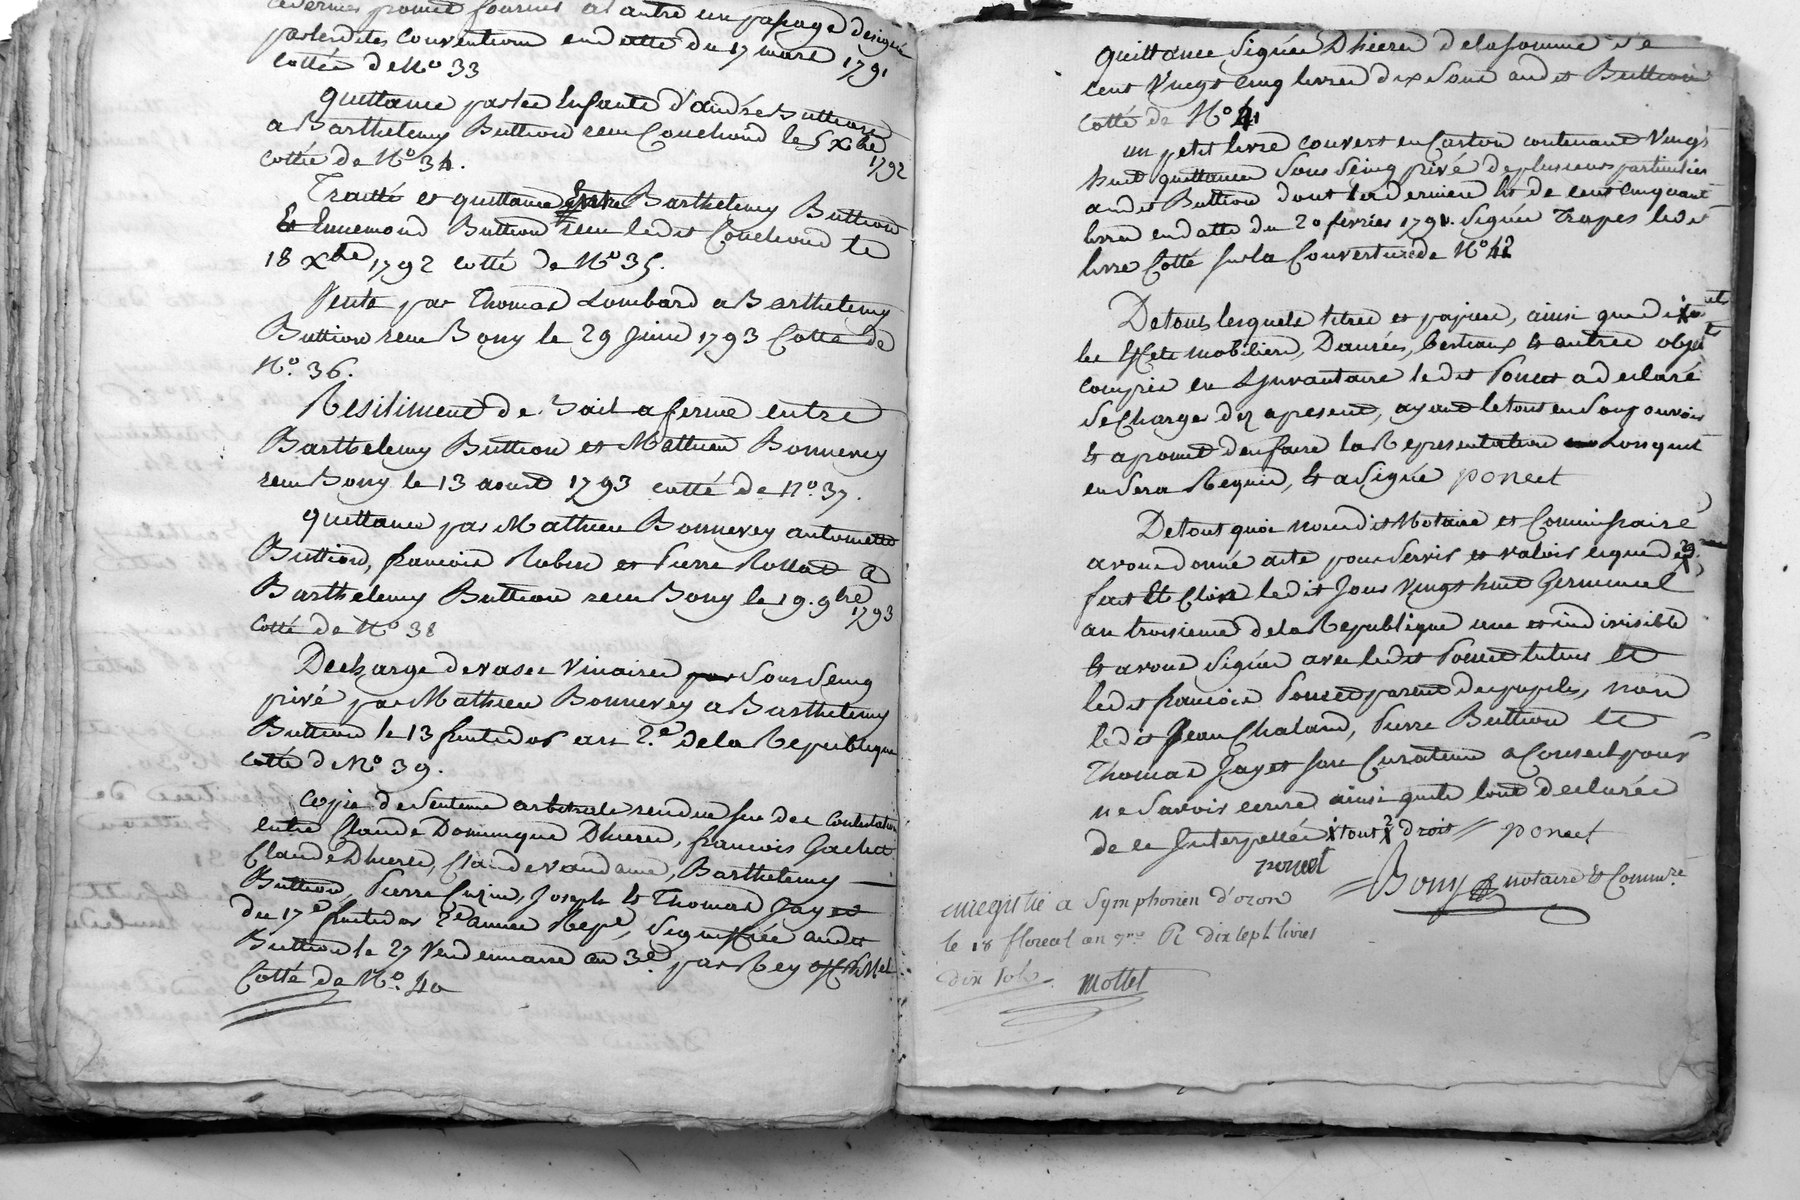 a fournir a l'autre un passage designé
par lesdites conventions en datte du 17 mars 1791
cottée de No 33
quittance par les Enfants d'andré Buttion
a Barthelemy Buttion reçu Couchoud le 5 xbre
1792
cottée de No. 34.
Traitté et quittance Entre Barthelemy Buttion
Et Ennemond Buttion reçu ledit Couchoud le
18 xbre 1792 cotté de No 35.
Vente par Thomas Lombard a Barthelemy
Buttion reçu Bony le 29 juin 1793 Cotté de
No. 36.
Resiliment de Bail a ferme entre
Barthelemy Buttion et Mathieu Bonnevey
reçu Bony le 13 aoust 1793 cotté de No. 37.
quittance par Mathieu Bonnevey antoinette
Buttion, francois Robin et Pierre Rollat a
Barthelemy Buttion reçu Bony le 19. 9bre
1793
cotté de No 38
Decharge de vases Vinaires par Sous Seing
privé par Mathieu Bonnevey a Barthelemy
Buttion le 13 fructidor an 2.e de la Republique
cotté de No 39.
Copie de Sentence arbitrale rendue sur des Contestations
entre Claude Dominique Dhieres, francois Gachet
Claude Dhieres, Claude vandanne, Barthelemy
Buttion, Pierre Cuzin, Joseph & Thomas Jayet
du 17e fructidor 2e année Repe, Signiffiée audit
Buttion le 27 Vendemiaire an 3e. par Rey officier
Cotté de No. 40
quittance Signée Dhieres de la somme de
cent Vingt Cinq livres dix Sous audit Buttion
cotté de No 41
un petit livre couvert en Carton contenant Vingt
huit quittances Sous Seing privé de plusieurs particuliers
audit Buttion dont la derniere est de cent cinquante
livres en datte du 20 fevrier 1791. Signée Trapes ledit
livre Cotté sur la Couverture de No 42
De tous lesquels titres et papiers, ainsi que de tous
les Effets mobiliers, Danrées, bestiaux & autres objets
compris en Linvantaire ledit Poncet a declaré
Se Charger dez apresent, ayant le tout en Son pouvoir
& a promit d'en faire la Representation Lorsquil
en Sera Requis, & a Signé poncet
De tout quoi nous dit Notaire et Commissaire
avons donné acte pour Servir et valoir ce que de
fait & Clos ledit Jour Vingt huit Germinal
an troisieme de la Republique une et indivisible
& avons Signé avec ledit Poncet tuteur et
ledit francois Poncet parent des pupiles, non
ledit Jean Chaland, Pierre Buttion et
Thomas Jayet son Curateur a Conseil pour
ne Savoir ecrire ainsi quils lont declarée
de ce Interpellés tout droit // poncet
poncet
Bony notaire & Commre.
enregistré a Symphorien d'ozon
le 18 floreal an 3me R dix sept livres
dix sols. Mottet